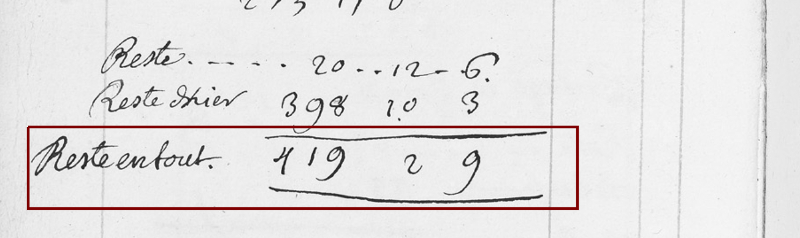 Reste. - - - . . 20 . . 12 - 6.
Reste d'hier 398 10 3
Reste en tout. 419 2 9